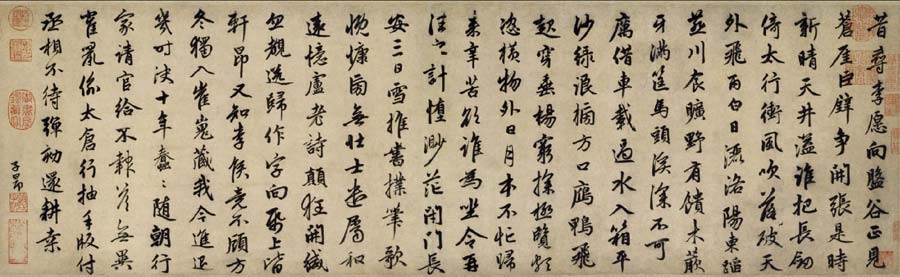 昔尋李愿向盤谷正見
蒼崖巨壁爭開張是時
新晴天井溢誰把長劍
倚太行衝風吹落破天
外飛雨白日灑洛陽東蹈
燕川食曠野有饋木蕨
牙滿筐馬頭溪深不可
厲借車載過水入箱平
沙綠浪搒方口雁鴨飛
起穿垂楊窮探極覽頗
恣橫物外日月本不忙歸
來辛苦欲誰為坐令再
往之計墮渺茫閉門長
安三日雪推書撲筆歌
慨慷旁無壯士遣屬和
遠憶盧老詩顛狂開緘
忽覩送歸作字向紙上皆
軒昂又知李侯竟不顧方
冬獨入崔嵬藏我今進退
幾時決十年蠢々隨朝行
家請官給不報答無異
雀鼠偷太倉行抽手版付
丞相不待彈劾還耕桑
子昂